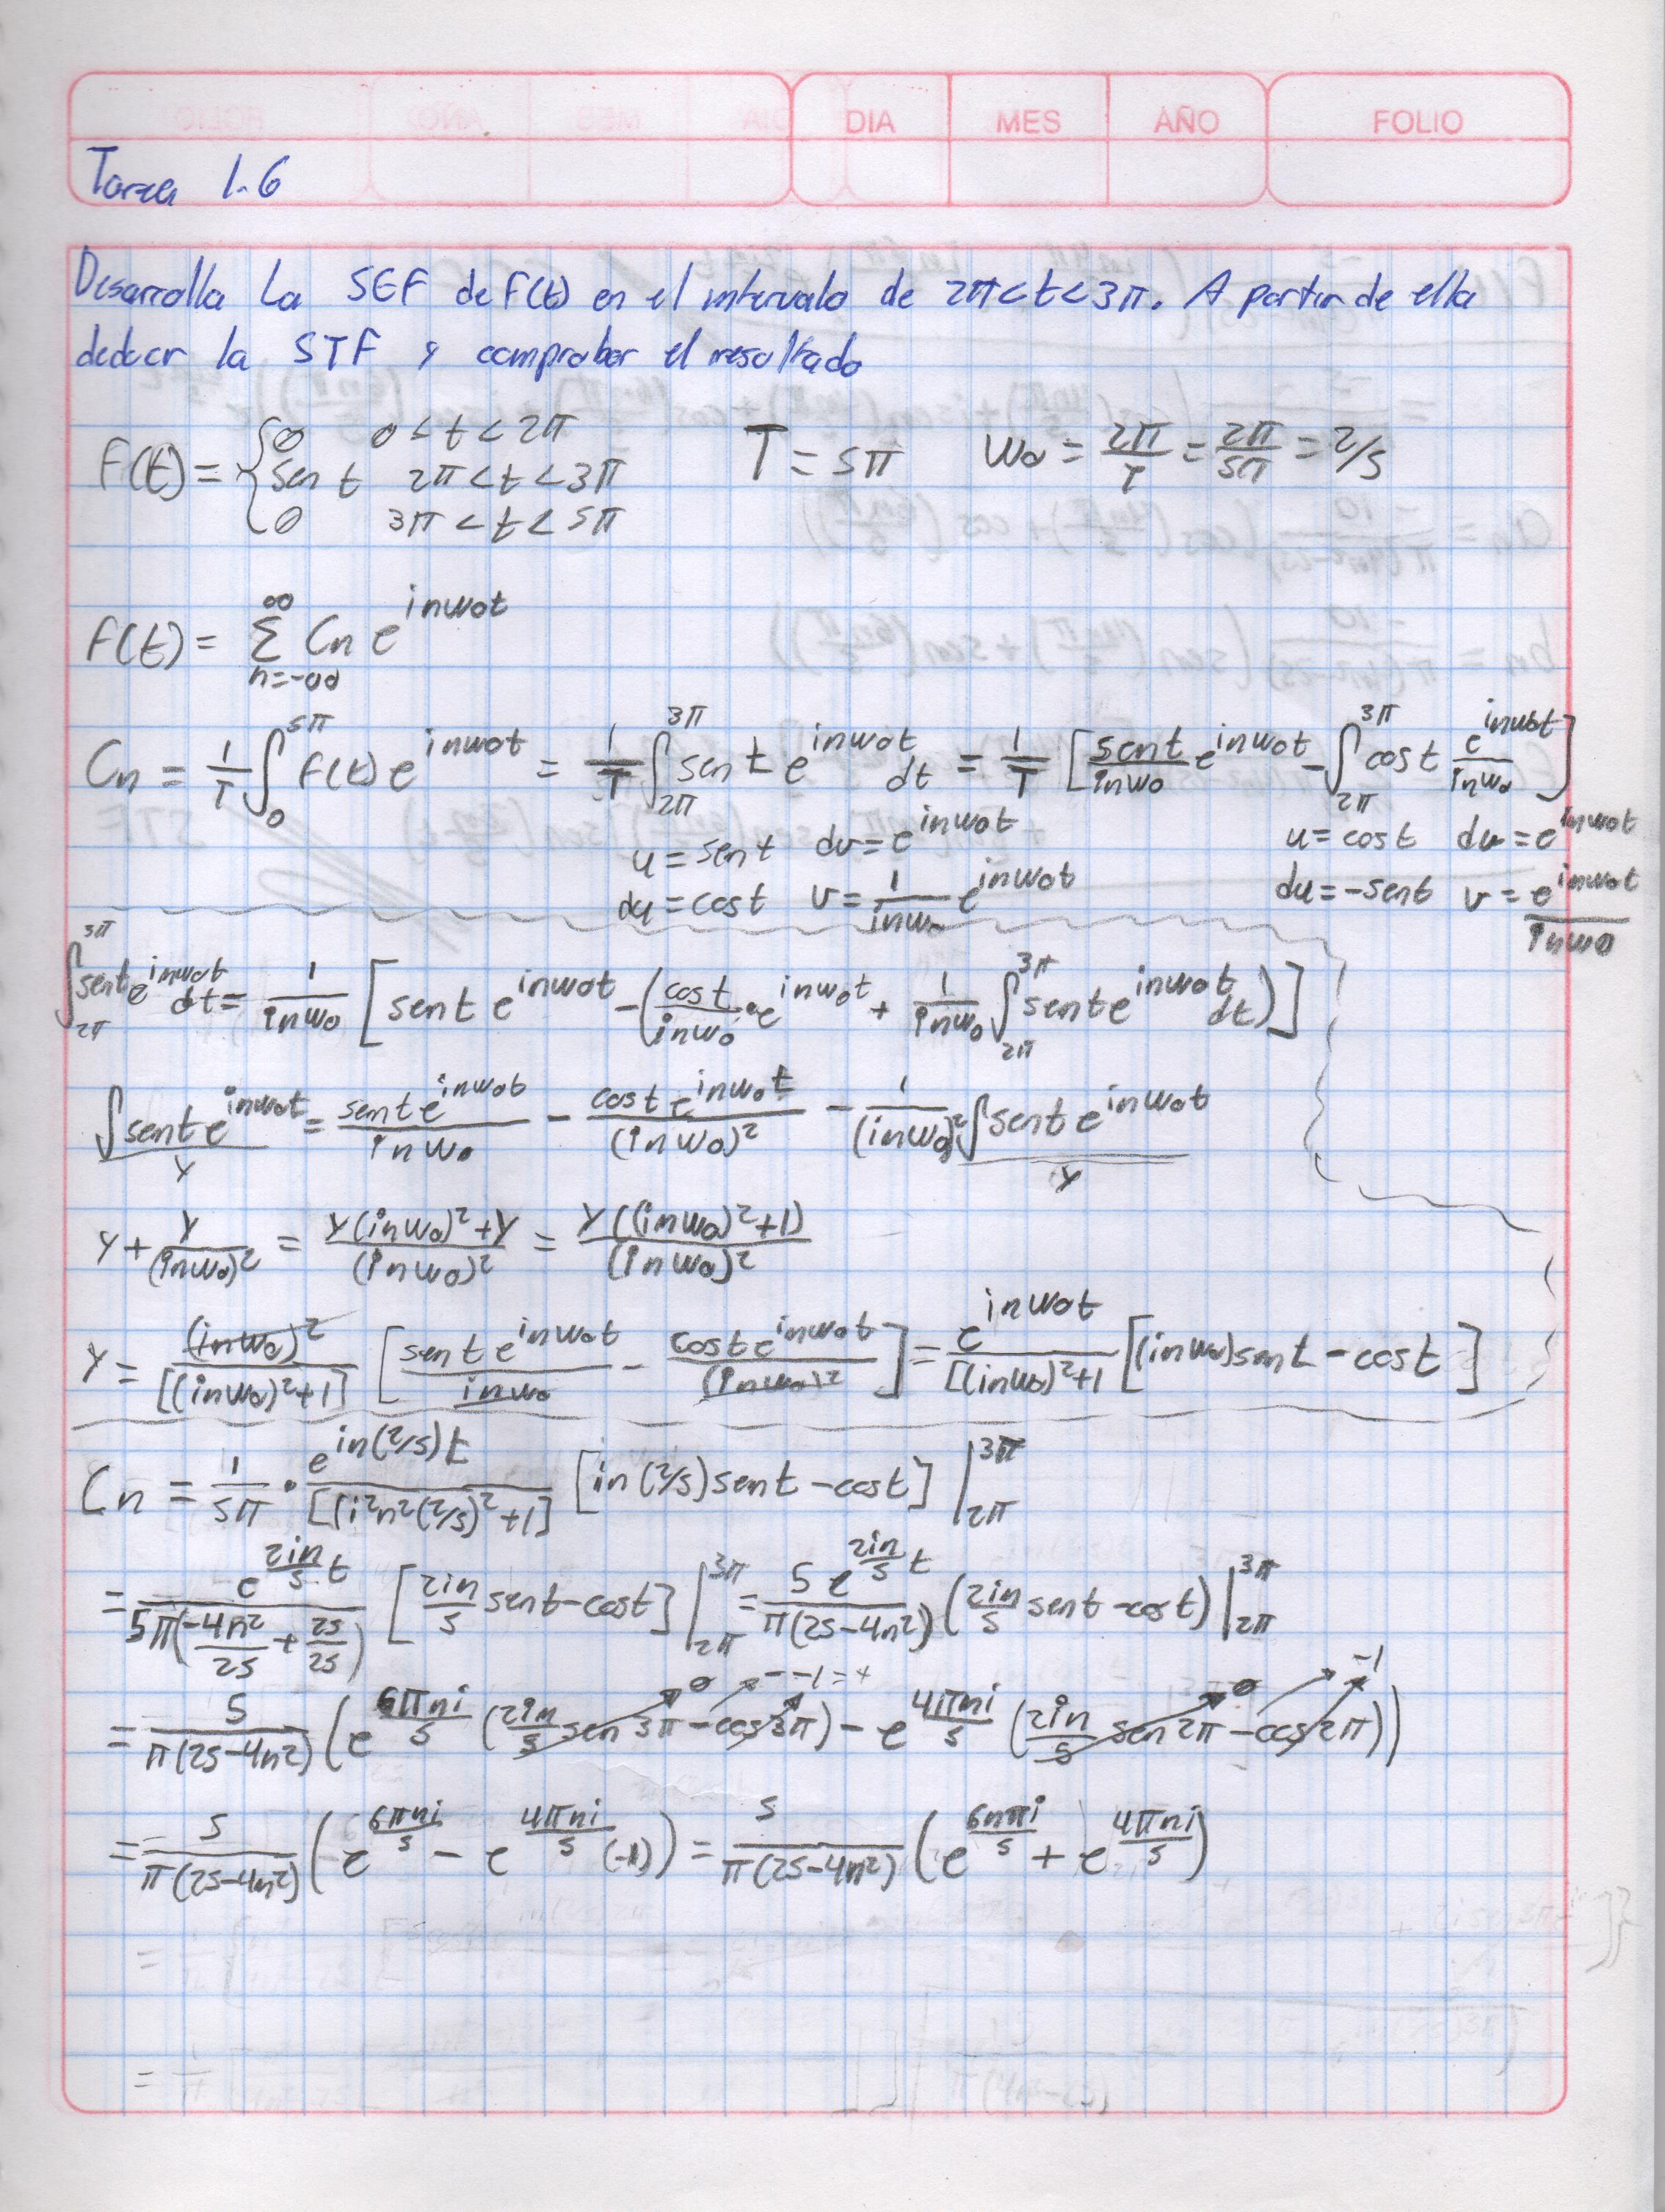 DIA MES AÑO FOLIO
Tarea 1.6
Desarrolla la SEF de f(t) en el intervalo de 2π<t<3π. A partir de ella
deducir la STF y comprobar el resultado
f(t) = { 0 0<t<2π
sen t 2π<t<3π
0 3π<t<5π
T = 5π w₀ = 2π/T = 2π/5π = 2/5
f(t) = Σ_{n=-∞}^{∞} Cn e^{inw₀t}
Cn = 1/T ∫_0^{5π} f(t) e^{inw₀t} = 1/T ∫_{2π}^{3π} sen t e^{inw₀t} dt = 1/T [ sen t/inw₀ e^{inw₀t} - ∫_{2π}^{3π} cos t e^{inw₀t}/inw₀ ]
u = sen t dv = e^{inw₀t} u = cos t dv = e^{inw₀t}
du = cos t v = 1/inw₀ e^{inw₀t} du = -sen t v = e^{inw₀t}/inw₀
∫_{2π}^{3π} sen t e^{inw₀t} dt = 1/inw₀ [ sen t e^{inw₀t} - ( cos t/inw₀ · e^{inw₀t} + 1/inw₀ ∫_{2π}^{3π} sen t e^{inw₀t} dt ) ]
∫ sen t e^{inw₀t} = sen t e^{inw₀t}/inw₀ - cos t e^{inw₀t}/(inw₀)² - 1/(inw₀)² ∫ sen t e^{inw₀t}
y y
y + y/(inw₀)² = y(inw₀)²+y/(inw₀)² = y((inw₀)²+1)/(inw₀)²
y = (inw₀)²/[(inw₀)²+1] [ sen t e^{inw₀t}/inw₀ - cos t e^{inw₀t}/(inw₀)² ] = e^{inw₀t}/[(inw₀)²+1 [(inw₀)sen t - cos t]
Cn = 1/5π · e^{in(2/5)t}/[[i²n²(2/5)²+1] [in(2/5)sen t - cos t] |_{2π}^{3π}
= e^{2in/5 t}/5π(-4n²/25 + 25/25) [2in/5 sen t - cos t] |_{2π}^{3π} = 5e^{2in/5 t}/π(25-4n²) (2in/5 sen t - cos t) |_{2π}^{3π}
0 --1=+ 0 -1
= 5/π(25-4n²) ( e^{6πni/5} (2in/5 sen 3π - cos 3π) - e^{4πni/5} (2in/5 sen 2π - cos 2π))
= 5/π(25-4n²) ( e^{6πni/5} - e^{4πni/5} (-1) ) = 5/π(25-4n²) ( e^{6nπi/5} + e^{4πni/5} )